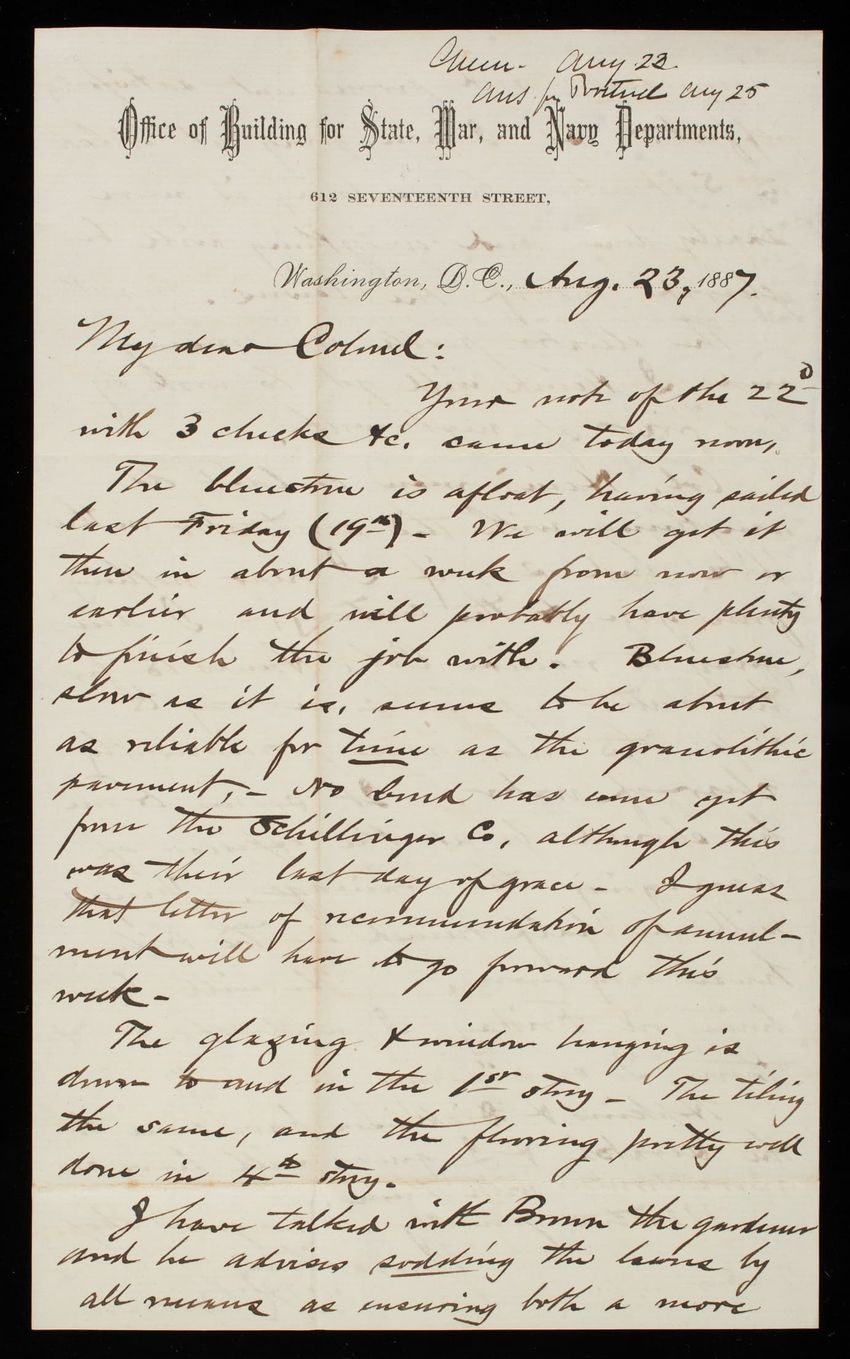 Aug 23
Ans Aug 25
Office of Building for State, War, and Navy Departments,
612 SEVENTEENTH STREET,
Washington, D.C., Aug. 23, 1887.
My dear Colonel:
Your note of the 22d
with 3 checks &c. came today noon,
The bluestone is afloat, having sailed
last Friday (19th) - We will get it
then in about a week from now or
earlier and will probably have plenty
to finish the job with. Bluestone,
slow as it is, seems to be about
as reliable for time as the granolithic
pavement, - No bond has come yet
from the Schillinger Co, although this
was their last day of grace - I guess
that letter of recommendation of annul-
ment will have to go forward this
week -
The glazing & window hanging is
down to and in the 1st story - The tiling
the same, and the flooring pretty well
done in 4th story.
I have talked with Brown the gardener
and he advises sodding the lawns by
all means as ensuring both a more